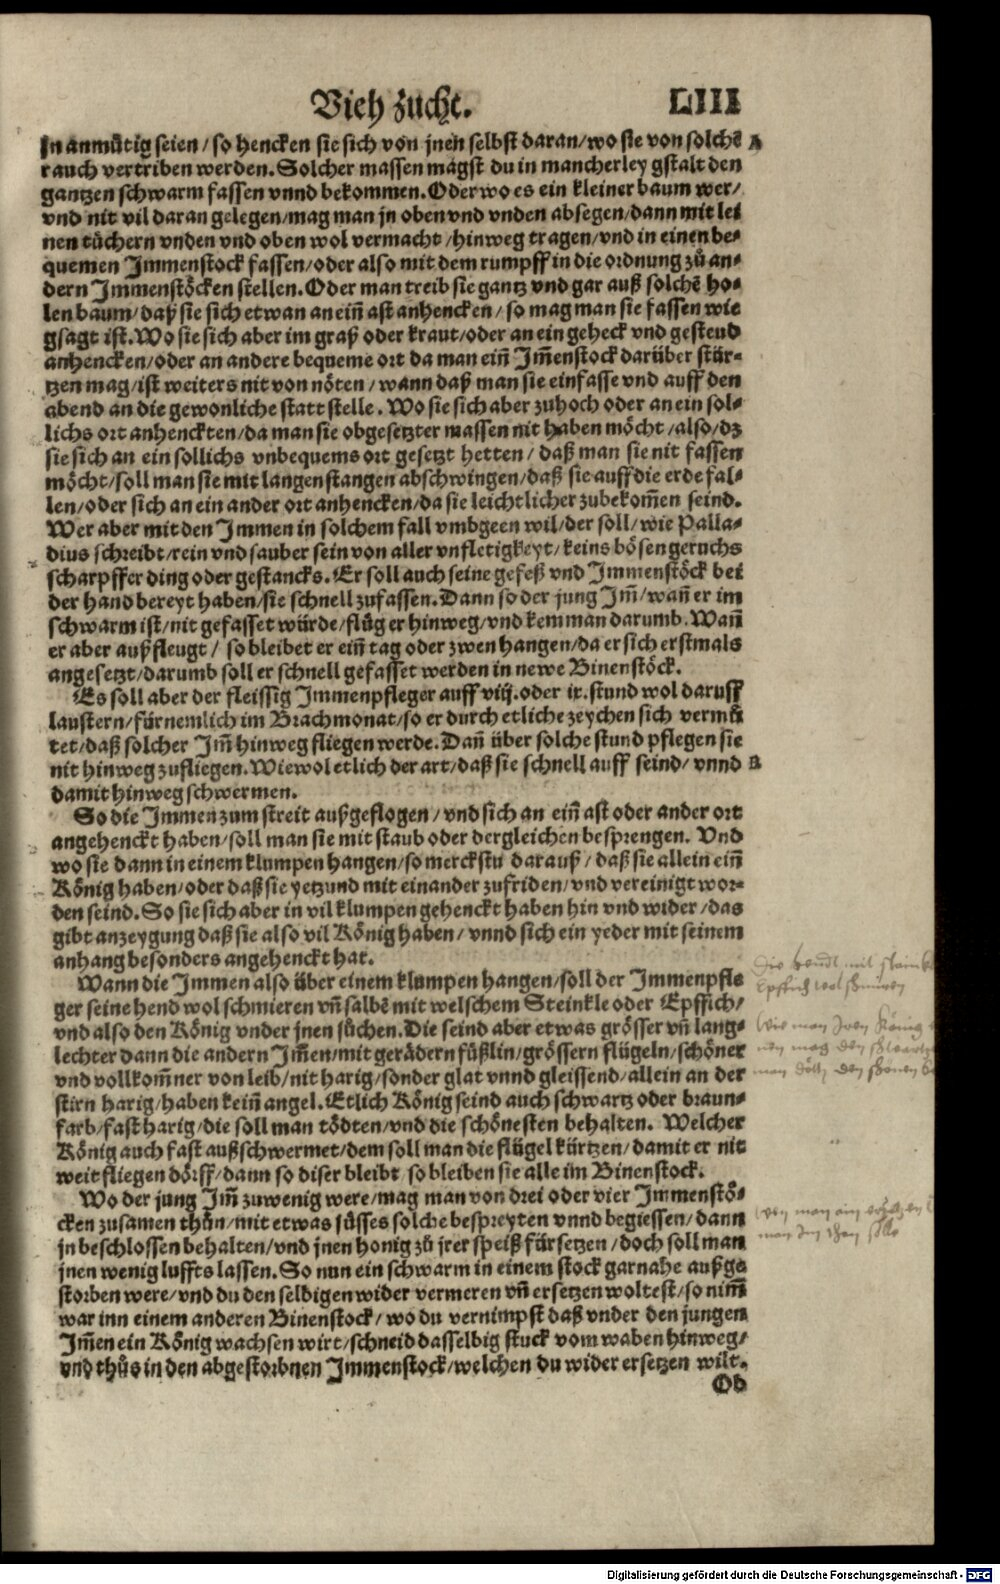 Vieh zucht. LIII
jn anmůtig seien / so hencken sie sich von jnen selbst daran / wo sie von solchē A
rauch vertriben werden. Solcher massen magst du in mancherley gstalt den
gantzen schwarm fassen vnnd bekommen. Oder wo es ein kleiner baum wer /
vnd nit vil daran gelegen / mag man jn oben vnd vnden absegen / dann mit lei
nen tüchern vnden vnd oben wol vermacht / hinweg tragen / vnd in einen be⸗
quemen Immenstock fassen / oder also mit dem rumpff in die ordnung zů an⸗
dern Immenstöcken stellen. Oder man treib sie gantz vnd gar auß solchē ho⸗
len baum / daß sie sich etwan an ein̄ ast anhencken / so mag man sie fassen wie
gsagt ist. Wo sie sich aber im graß oder kraut / oder an ein geheck vnd gesteud
anhencken / oder an andere bequeme ort da man ein̄ Im̄enstock darüber stür⸗
tzen mag / ist weiters nit von nöten / wann daß man sie einfasse vnd auff den
abend an die gewonliche statt stelle. Wo sie sich aber zuhoch oder an ein sol⸗
lichs ort anhenckten / da man sie obgesetzter massen nit haben möcht / also / dz
sie sich an ein sollichs vnbequems ort gesetzt hetten / daß man sie nit fassen
möcht / soll man sie mit langen stangen abschwingen / daß sie auff die erde fal⸗
len / oder sich an ein ander ort anhencken / da sie leichtlicher zubekom̄en seind.
Wer aber mit den Immen in solchem fall vmbgeen wil / der soll / wie Palla⸗
dius schreibt / rein vnd sauber sein von aller vnfletigkeyt / keins bösen geruchs
scharpffer ding oder gestancks. Er soll auch seine gefeß vnd Immenstöck bei
der hand bereyt haben / sie schnell zufassen. Dann so der jung Im̄ / wañ er im
schwarm ist / nit gefasset würde / flüg er hinweg / vnd kem man darumb. Wañ
er aber außfleugt / so bleibet er ein̄ tag oder zwen hangen / da er sich erstmals
angesetzt / darumb soll er schnell gefasset werden in newe Binenstöck.
Es soll aber der fleissig Immenpfleger auff viij. oder ix. stund wol daruff
laustern / fürnemlich im Brachmonat / so er durch etliche zeychen sich vermů
tet / daß solcher Im̄ hinweg fliegen werde. Dañ über solche stund pflegen sie
nit hinweg zufliegen. Wiewol etlich der art / daß sie schnell auff seind / vnnd B
damit hinweg schwermen.
So die Immen zum streit außgeflogen / vnd sich an ein̄ ast oder ander ort
angehenckt haben / soll man sie mit staub oder dergleichen besprengen. Vnd
wo sie dann in einem klumpen hangen / so merckstu darauß / daß sie allein ein̄
König haben / oder daß sie yetzund mit einander zufriden / vnd vereinigt wor⸗
den seind. So sie sich aber in vil klumpen gehenckt haben hin vnd wider / das
gibt anzeygung daß sie also vil König haben / vnnd sich ein yeder mit seinem
anhang besonders angehenckt hat.
Wann die Immen also über einem klumpen hangen / soll der Immenpfle
ger seine hend wol schmieren vn̄ salbē mit welschem Steinkle oder Epffich /
vnd also den König vnder jnen sůchen. Die seind aber etwas grösser vn̄ lang⸗
lechter dann die andern Im̄en / mit gerädern füßlin / grössern flügeln / schöner
vnd vollkom̄ner von leib / nit harig / sonder glat vnnd gleissend / allein an der
stirn harig / haben kein̄ angel. Etlich König seind auch schwartz oder braun⸗
farb / fast harig / die soll man tödten / vnd die schönesten behalten. Welcher
König auch fast außschwermet / dem soll man die flügel kürtzen / damit er nit
weit fliegen dörff / dann so diser bleibt / so bleiben sie alle im Binenstock.
Wo der jung Im̄ zuwenig were / mag man von drei oder vier Immenstö⸗
cken zusamen thůn / mit etwas süsses solche bespreyten vnnd begiessen / dann
jn beschlossen behalten / vnd jnen honig zů jrer speiß fürsetzen / doch soll man
jnen wenig luffts lassen. So nun ein schwarm in einem stock garnahe außge
storben were / vnd du den selbigen wider vermeren vn̄ ersetzen woltest / so nim̄
war inn einem anderen Binenstock / wo du vernimpst daß vnder den jungen
Im̄en ein König wachsen wirt / schneid dasselbig stuck vom waben hinweg /
vnd thůs in den abgestorbnen Immenstock / welchen du wider ersetzen wilt.
Ob
Die hendt mit
Epffich wol
Wie man König
man den
man den schönen
Wen man ein
man
Digitalisierung gefördert durch die Deutsche Forschungsgemeinschaft - DFG